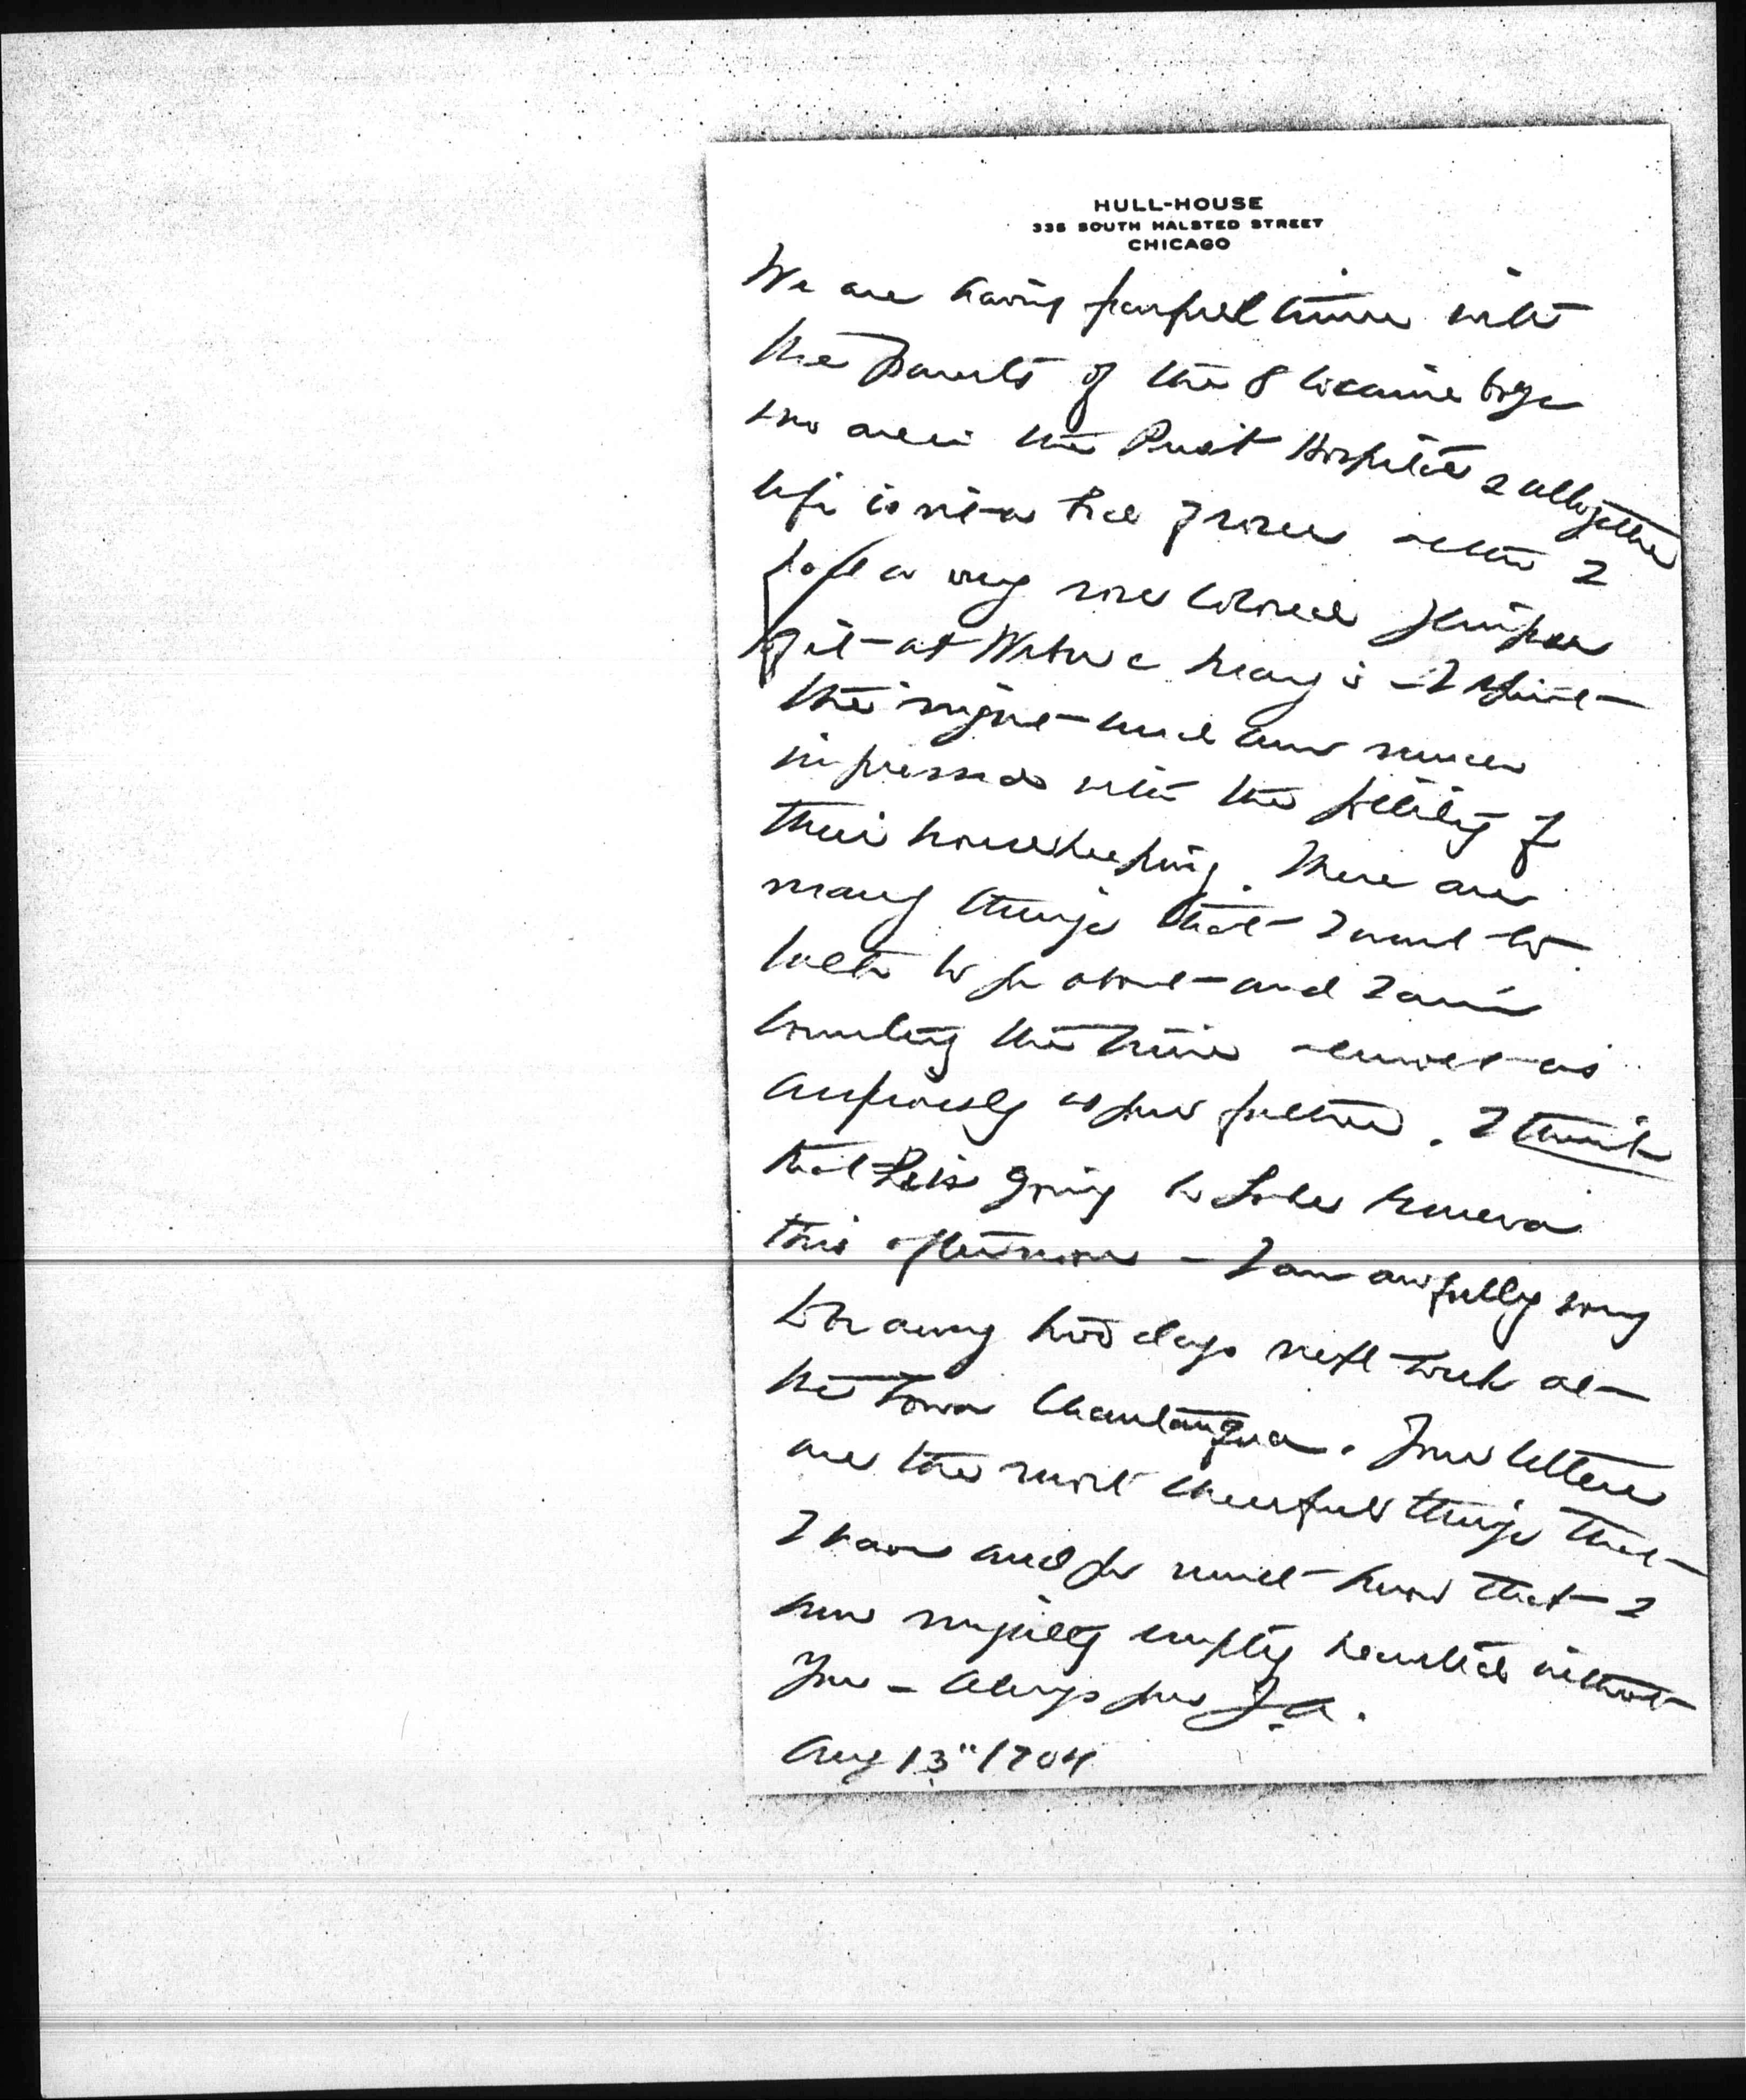 HULL-HOUSE
335 SOUTH HALSTED STREET
CHICAGO
We are having times with
the parents of the 8 cocaine boys
who are in the Hospital & altogether
life is not a bed of roses altho I
got a very rose colored glimpse
of it at Mary's – I spent
the night and am much
impressed with the of
their housekeeping. There are
many things that I want to
talk to yr about and I am
counting the time almost as
anxiously as your father. I think
that he is going to Lake Geneva
this afternoon – I am awfully sorry
to be away two days next week at
the Iowa Chautauqua. Your letters
are the most cheerful things that
I have and yr must know that I
am mighty empty hearted without
you – Always yrs J.A.
Aug 13" 1904